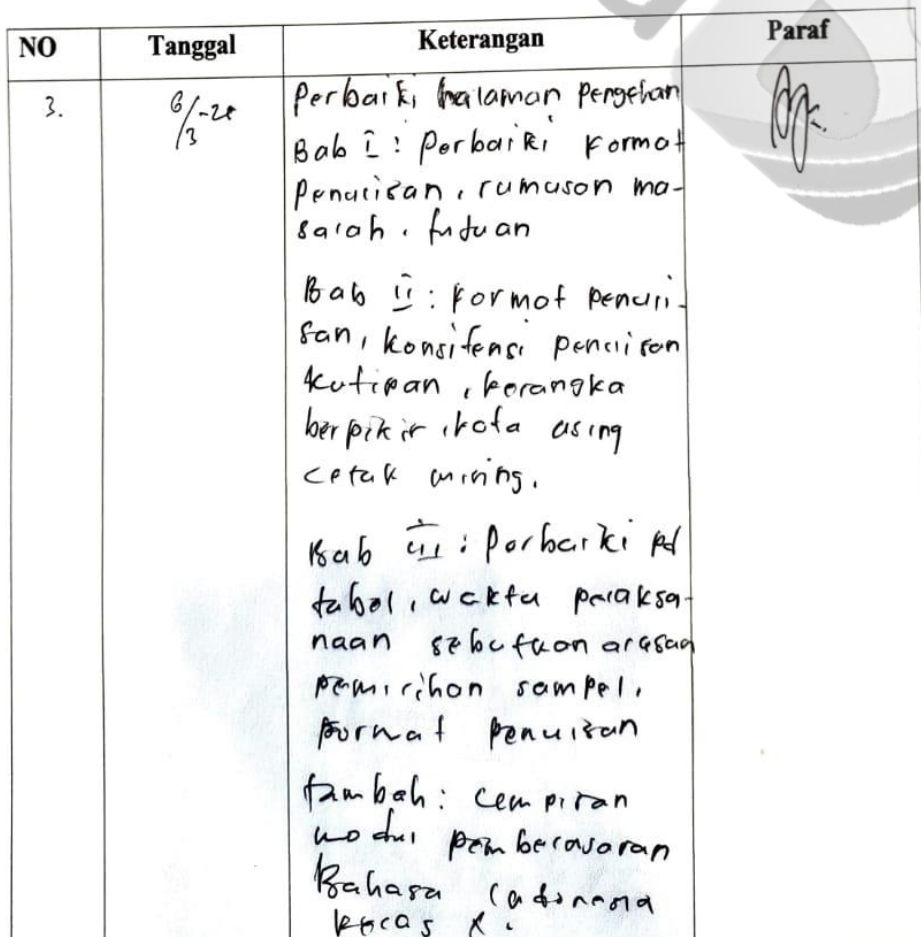 NO Tanggal Keterangan Paraf
3. 6/3-20 Perbaiki halaman Pengesahan
Bab I : Perbaiki Format
Penulisan, rumusan ma-
salah, tujuan
Bab II : Format Penuli-
san, konsistensi penulisan
kutipan, kerangka
berpikir, kata asing
cetak miring.
Bab III : Perbaiki pd
tabel, waktu pelaksa-
naan sebutkan alasan
pemilihan sampel,
format penulisan
tambah: lampiran
modul pembelajaran
Bahasa Indonesia
kelas X.